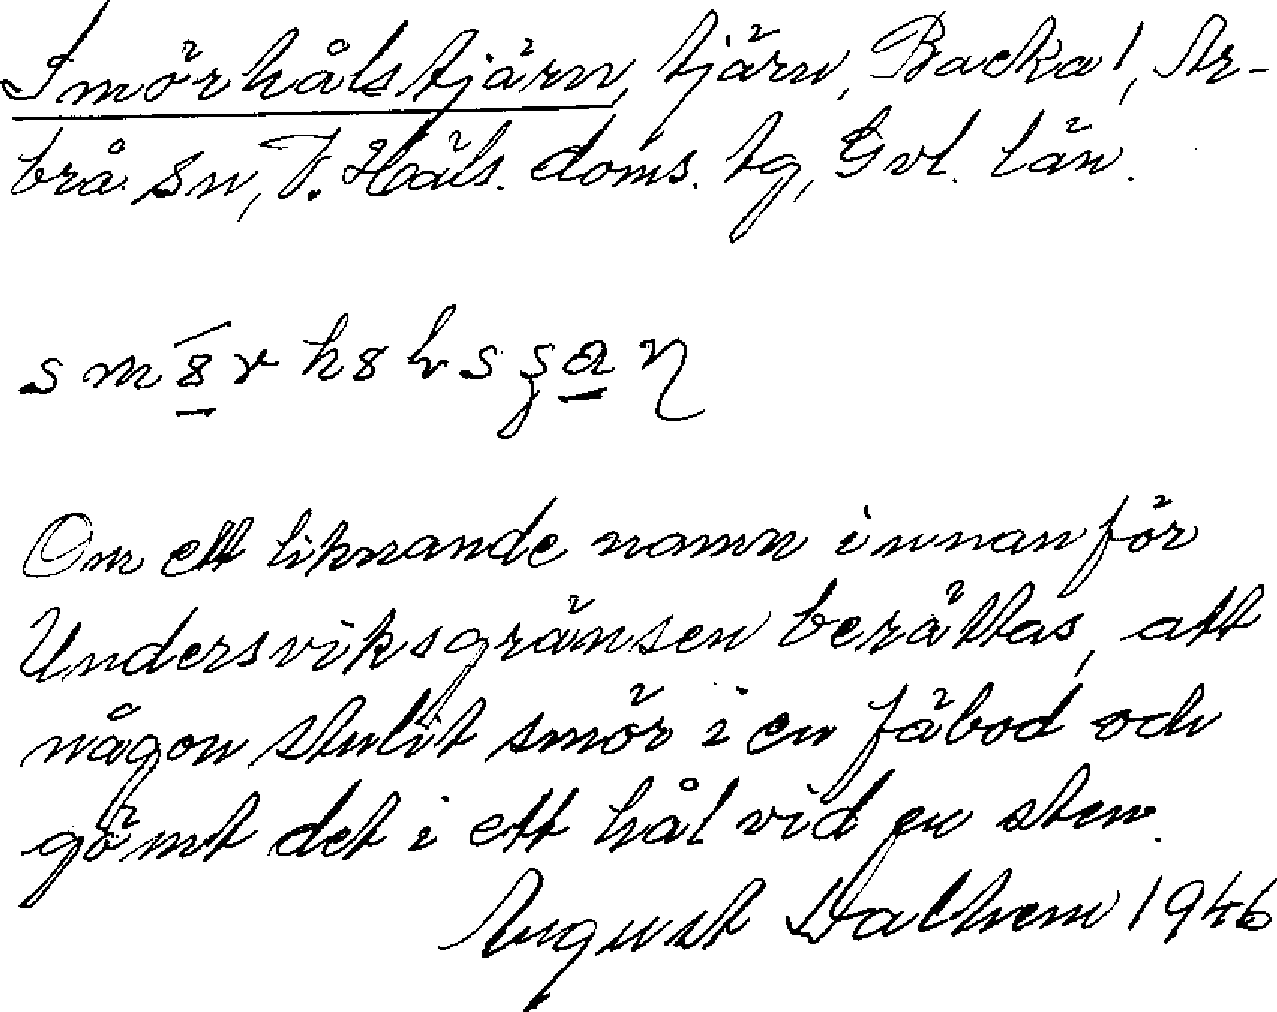 Smörhålstjärn, tjärn, Backa 1, Ar-
brå sn, V. Häls. doms. tg, Gvl. län.
Om ett liknande namn innanför
Undersviksgränsen berättas, att
någon stulit smör i en fäbod och
gömt det i ett hål vid en sten.
August Dalhem 1946